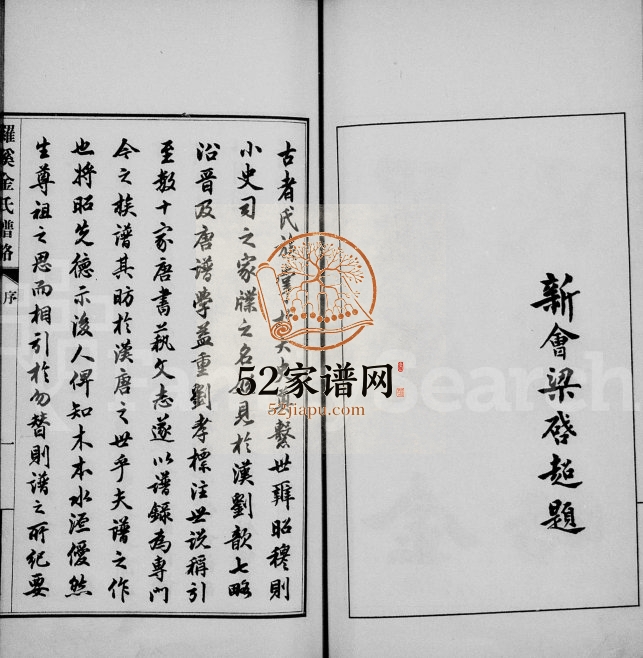 新會梁啓超題
古者氏族掌於繫世辨昭穆則
小史司之家牒之名見於漢劉歆七略
沿晉及唐譜學益重劉孝標注世說稱引
至數十家唐書藝文志遂以譜錄為專門
今之族譜其昉於漢唐之世乎夫譜之作
也將昭先德示後人俾知木本水源僾然
生尊祖之思而相引於勿替則譜之所紀要
羅溪金氏譜略
序
52家谱网
52jiapu.com
FamilySearch